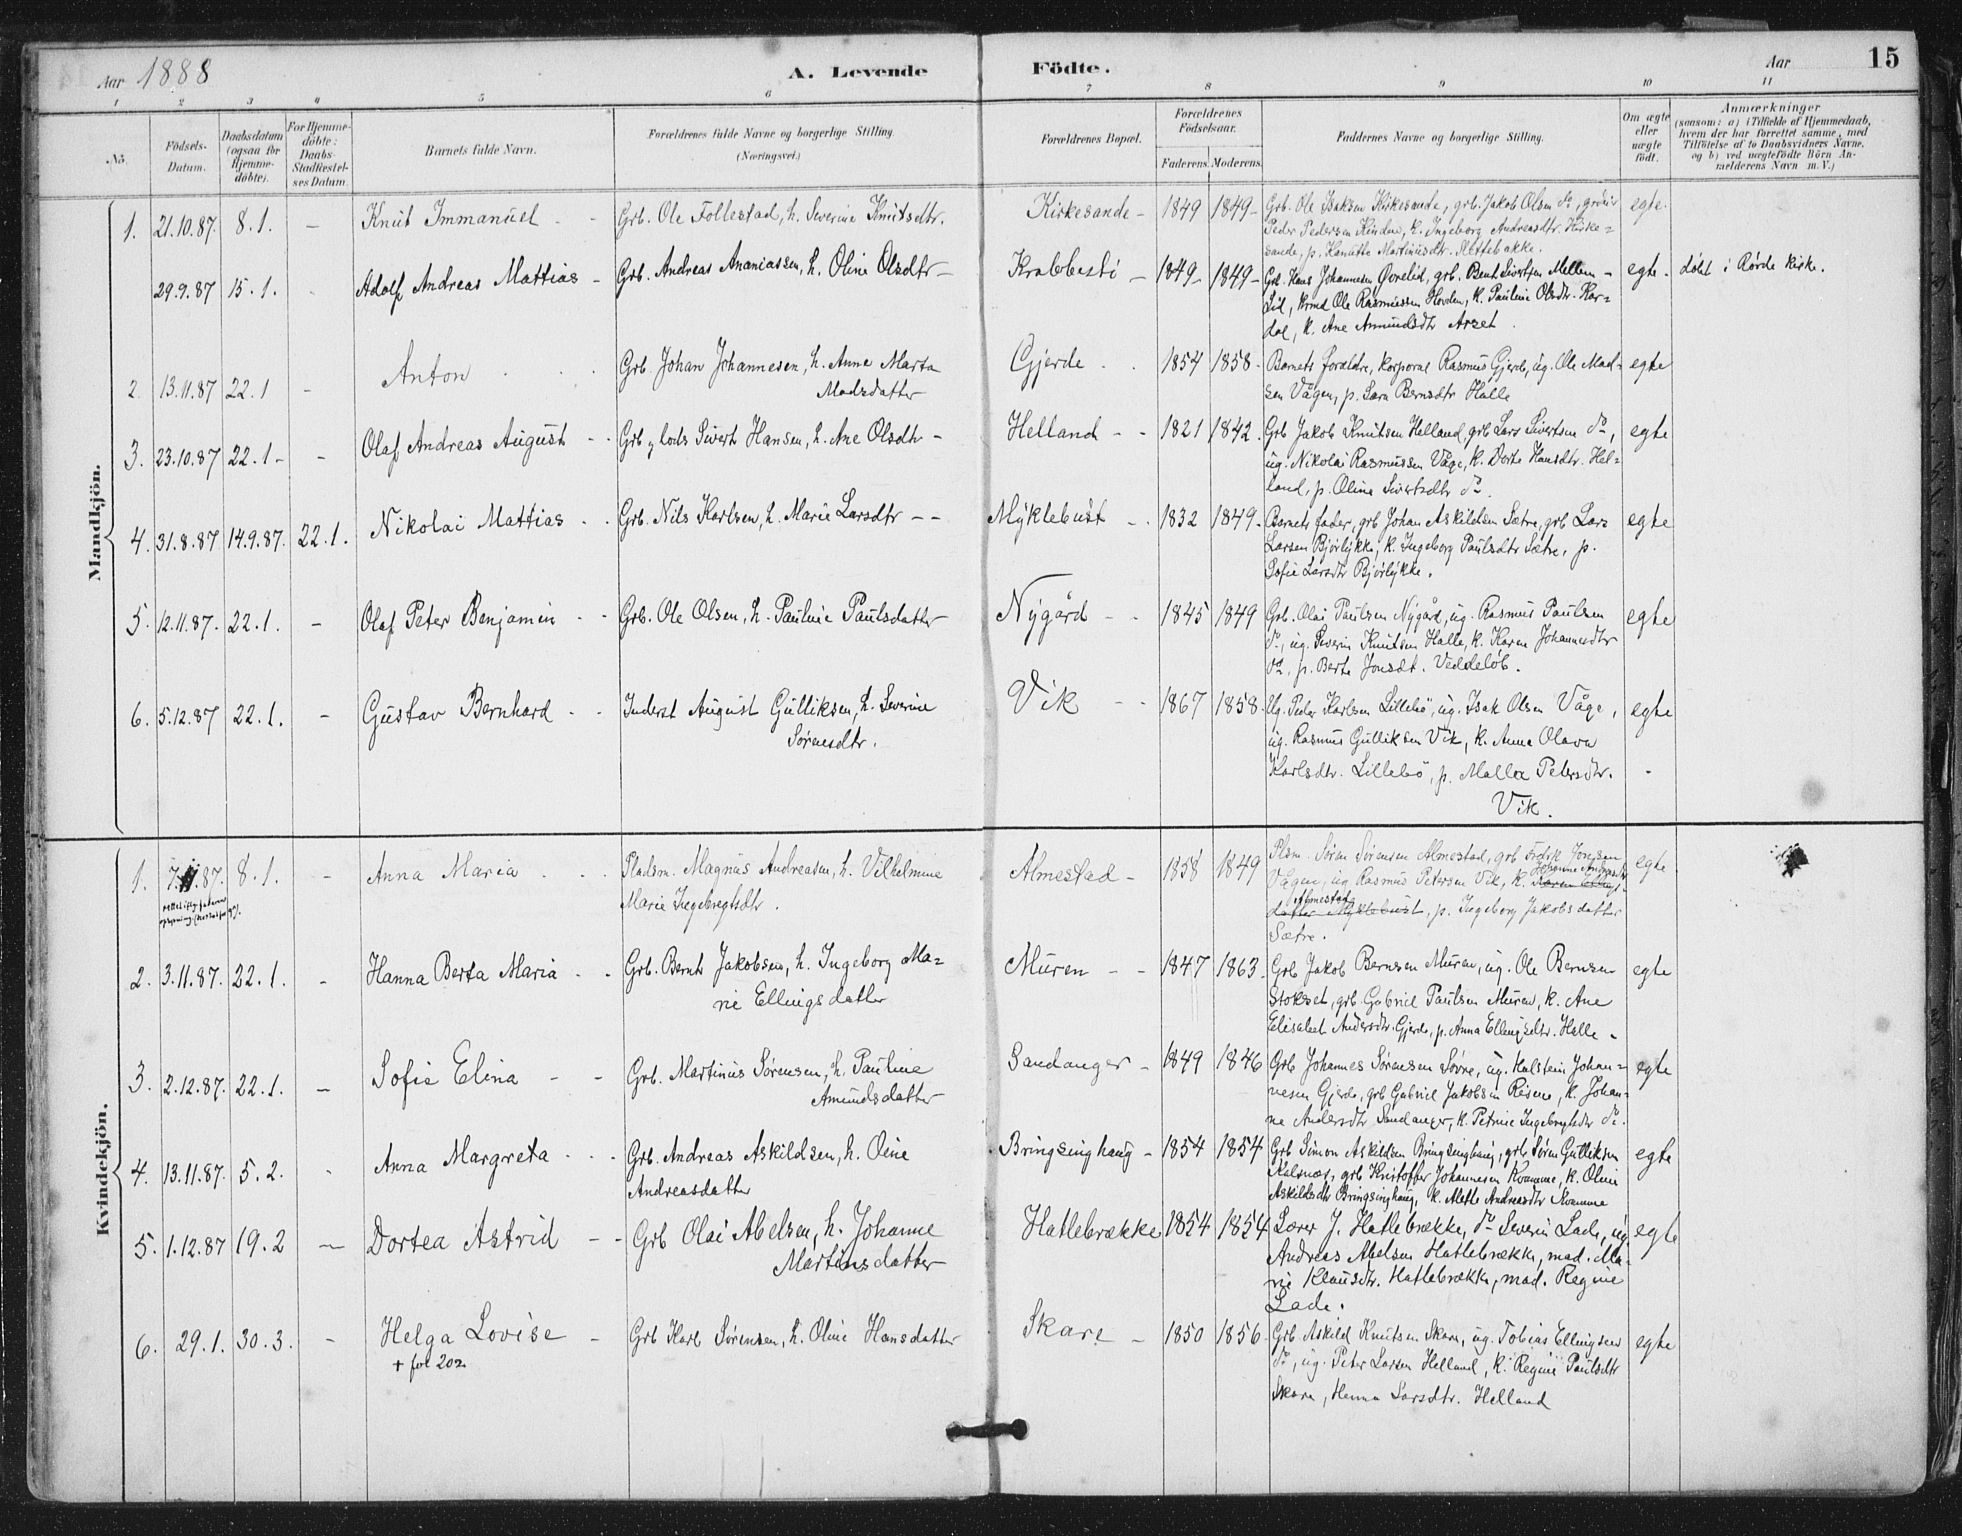 Aar 1888
A. Levende Födte.
Aar
15
1 2 3 4 5 6 7 8 9 10 11
No.
Födsels-Datum.
Daabsdatum (ogsaa for Hjemmedöbte).
For Hjemmedöbte: Daabs-Stadfæstelses Datum.
Barnets fulde Navn.
Forældrenes fulde Navne og borgerlige Stilling. (Næringsvei.)
Forældrenes Bopæl.
Forældrenes Födselsaar.
Faderens. Moderens.
Faddernes Navne og borgerlige Stilling.
Om ægte eller uægte födt.
Anmærkninger (saasom: a) i Tilfælde af Hjemmedaab, hvem der har forrettet samme, med Tilföielse af to Daabsvidners Navne, og b) ved uægtefödte Börn Anmelderens Navn m. V.)
Mandkjön.
1. 21.10.87. 8.1. — Knut Immanuel - - Grb. Ole Follestad, h. Severine Knutsdtr. Kirkesande - 1849 1849 - Grb. Ole Isaksen Kirkesande, grb. Jakob Olsen do, egte.
Peder Pedersen Kindow, k. Ingeborg Andreasdtr. Kirke=
sande, p. Hanutte Martinusdtr. Slettebakke.
29.9.87 15.1. - Adolf Andreas Mattias - Grb. Andreas Ananiassen, h. Oline Olsdtr - Krabbestö - 1849 - 1849 - Grb. Hans Johannesen Øvrelid, grb. Bent Sivertsen Mellem- egte. döbt i Rövde Kirke.
Lid, krmd Ole Rasmussen Hovden, k. Pauline Olsdtr. Kar=
dal, k. Ane Amundsdtr Arset.
2. 13.11.87 22.1 - Anton . . . Grb. Johan Johannesen, h. Anne Marta Gjerde . . 1854 1858. Barnets foreldre, korporal Rasmus Gjerde, ug. Ole Mad= egte
Madsdatter
sen Vågen, p. Sara Berntsdtr Halle
3. 23.10.87 22.1 - - Olaf Andreas August - - Grb. & lods Sivert Hansen, h. Ane Olsdtr - Helland - - 1821 1842. Grb Jakob Knutsen Helland, grb Lars Sivertsen do, egte
ug. Nikolai Rasmussen Våge, k. Dorte Hansdtr. Hel=
land, p. Oline Sivertsdtr do.
4. 31.8.87 14.9.87. 22.1. Nikolai Mattias . . Grb. Nils Karlsen, h. Marie Larsdtr - - Myklebust - . 1832 1849. Barnets fader, grb Johan Askildsen Sætre, grb Lars egte
Larsen Bjørlykke, k. Ingeborg Paulsdtr Sætre, p.
Sofie Larsdtr Bjørlykke.
5. 12.11.87. 22.1. - Olaf Peter Benjamin - - Grb. Ole Olsen, h. Pauline Paulsdatter Nygård - - 1845 1849 Grb. Olai Paulsen Nygård, ug. Rasmus Paulsen egte
do, ug. Severin Knutsen Halle, k. Karen Johannesdtr
do, p. Berte Jonsdt. Veddeløb.
6. 5.12.87 22.1. - Gustav Bernhard . . Inderst August Gulliksen, h. Severine Vik - - 1867 1858. Ug. Peder Karlsen Lillebö, ug. Isak Olsen Våge, egte
Sørensdtr.
ug. Rasmus Gulliksen Vik, k. Anna Olava
Karlsdtr. Lillebö, p. Malla Petersdtr.
Vik.
Kvindekjön.
1. 7.11.87. 8.1. - Anna Maria . . . Pladsm. Magnus Andreasen, h. Vilhelmine Almestad - 1858 1849 Plsm. Søren Sørensen Almestad, grb Fredrik Jonsen egte
Marie Ingebregtsdtr.
Vågen, ug Rasmus Petersen Vik, k. Johanne Andreasdtr
Almestad
datter Myklebust, p. Ingeborg Jakobsdatter
Sætre.
2. 3.11.87. 22.1. - Hanna Berta Maria - . Grb. Bernt Jakobsen, h. Ingeborg Ma= Muren - - 1847 1863. Grb Jakob Berntsen Muren, ug. Ole Berntsen egte
rie Ellingsdatter
Stokset, grb Gabriel Paulsen Muren, k. Ane
Elisabet Andersdtr. Gjerde, p. Anna Ellingsdtr. Halle -
3. 2.12.87. 22.1. - Sofie Elina - - Grb. Martinus Sørensen, h. Pauline Sandanger - 1849 1846 Grb Johannes Sørensen Søvre, ug. Halstein Johan= egte
Amundsdatter
nesen Gjerde, grb Gabriel Jakobsen Risene, k. Johan=
ne Andersdtr Sandanger, k. Petrine Ingebregtsdtr do.
4. 13.11.87. 5.2. - Anna Margreta - - - Grb. Andreas Askildsen, h. Oline Bringsinghaug - 1854 1854 Grb Simon Askildsen Bringsinghaug, grb Søren Gulliksen egte
Andreasdatter
Kalsnæs, grb Kristoffer Johannesen Kvamme, k. Oline
Askildsdtr Bringsinghaug, k. Alette Andreasdtr Kvamme
5. 1.12.87 19.2 - Dortea Astrid - - Grb Olai Abelsen, h. Johanne Hatlebrække 1854 1854 Lærer J. Hatlebrække, do Severin Lade, ug egte
Martinsdatter
Andreas Abelsen Hatlebrække, mad. Ma=
rie Klausdtr. Hatlebrække, mad. Regine
Lade.
6. 29.1. 30.3. - Helga Lovise - Grb Karl Sørensen, h. Oline Hansdatter Skare - 1850 1856. Grb Askild Knutsen Skare, ug. Tobias Ellingsen egte
+ fol 202
do, ug. Peter Larsen Helland, k. Regine Paulsdtr
Skare, Hanna Larsdtr. Helland